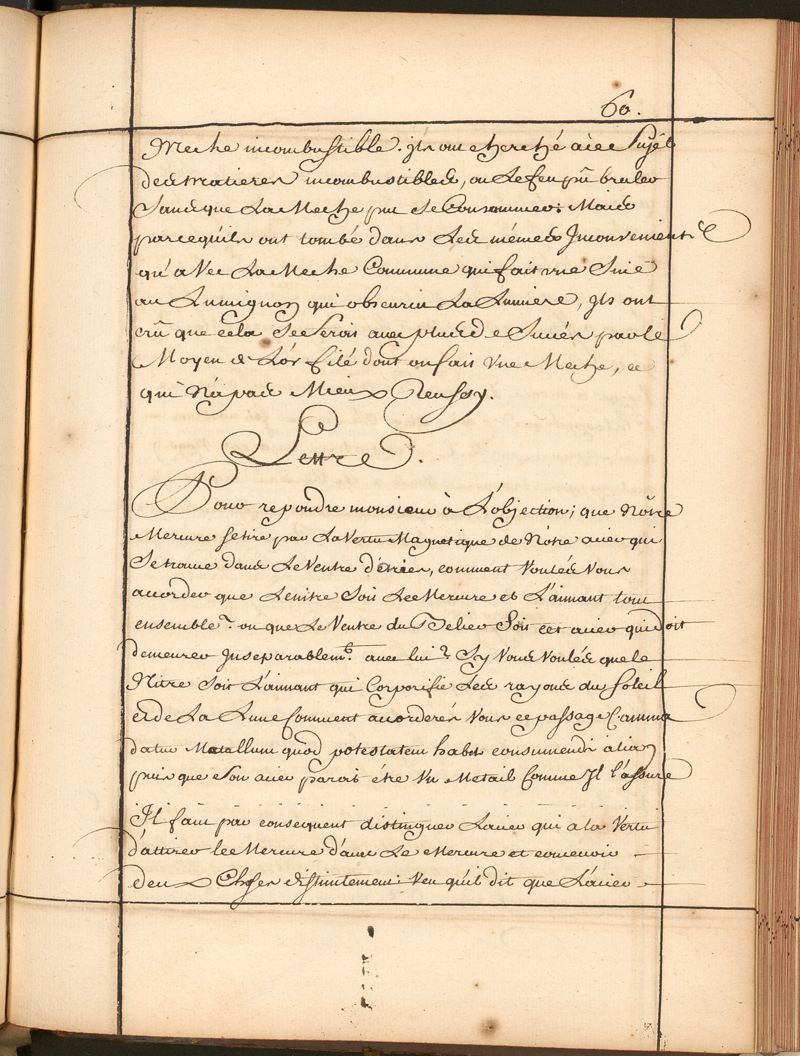 60.
Meche incombustible. jls ont cherché avec Sujét
des matieres incombustibles, ou Le feu pû bruler
Sans que La Meche put se Consommer. Mais
parcequ'ils ont tombé dans Les mémes Jnconvenients
qu'avec La Meche Commune qui fait une Suie
au Lumignon qui obscurcit La Lumiere, jls ont
crû que cela se Seroit avec plus de Succés par le
Moyen de L'or filé dont on fait Une Meche, ce
qui n'a pas Mieux Reussy.
Lettre.
Pour repondre monsieur à L'objection; que Nôtre
Mercure se tire par La Vertu Magnetique de Nôtre acier qui
Se trouve dans Le Ventre d'aries, comment Voulés Vous
accorder que Le nitre Soit Le Mercure et L'aimant tout
ensemble? ou que Le Ventre du Belier Soit cet acier qui doit
demeurer Jnseparablemt. avec lui? Sy Vous Voulés que le
Nitre soit L'aimant qui Corporifie Les rayons du Soleil
et de La Lune Comment accorderés Vous ce passage
datur Metallum quod potestatem habet consumendi alia,
puis que son acier paroit étre Un Metail Comme Jl l'assure
Il faut par consequent distinguer L'acier qui a la Vertu
d'attirer le Mercure d'avec Le Mercure et concevoir
deux Choses distinctement: Veu qu'il dit que L'acier